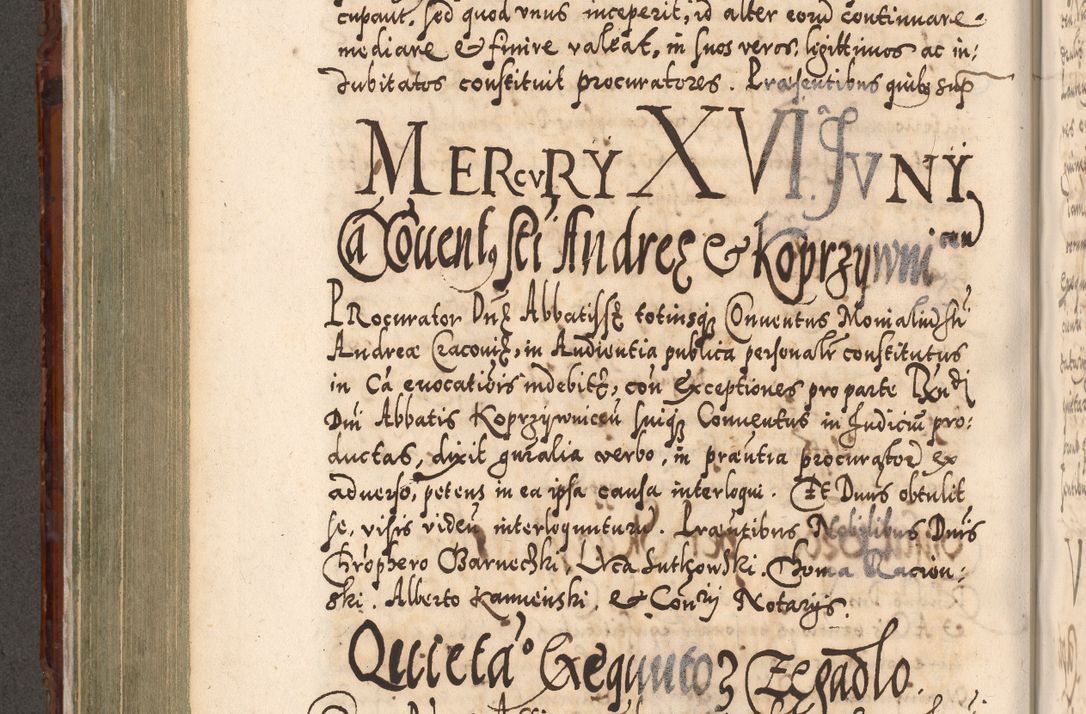 cupauit, sed quod vnus inceperit, id alter eorū continuare
mediare & finire valeat, in suos veros, legittimos ac in-
dubitatos constituit procuratores. Præsentibus quibꝫ sup
MERCVRY XVI IVNY
Ca Couentꝯ Sti Andreę & Koprzywnicen
PRocurator Dnę Abbatissę totiusqꝫ Conuentus Monialiū Sti
Andreæ Cracouię, in Audientia publica personalr constitutus
in Ca euocatiõis indebitę, con Exceptiones pro parte Rndi
Dni Abbatis Koprzywnicen suiqꝫ Conuentus in Iudiciū pro:
ductas, dixit gnralia verbo, in præntia procuratoris ex
aduerso, petens in ea ipsa causa interloqui. Et Dnus obtulit
se, visis videñ interloquuturū. Præntibus Nobilibus Dnis
Chrophero Czarnecki, Luca Lutkowski. Thoma Racion:
ski. Alberto Kamienski. & Conrij Notarijs.
Quieta° Gegnuto